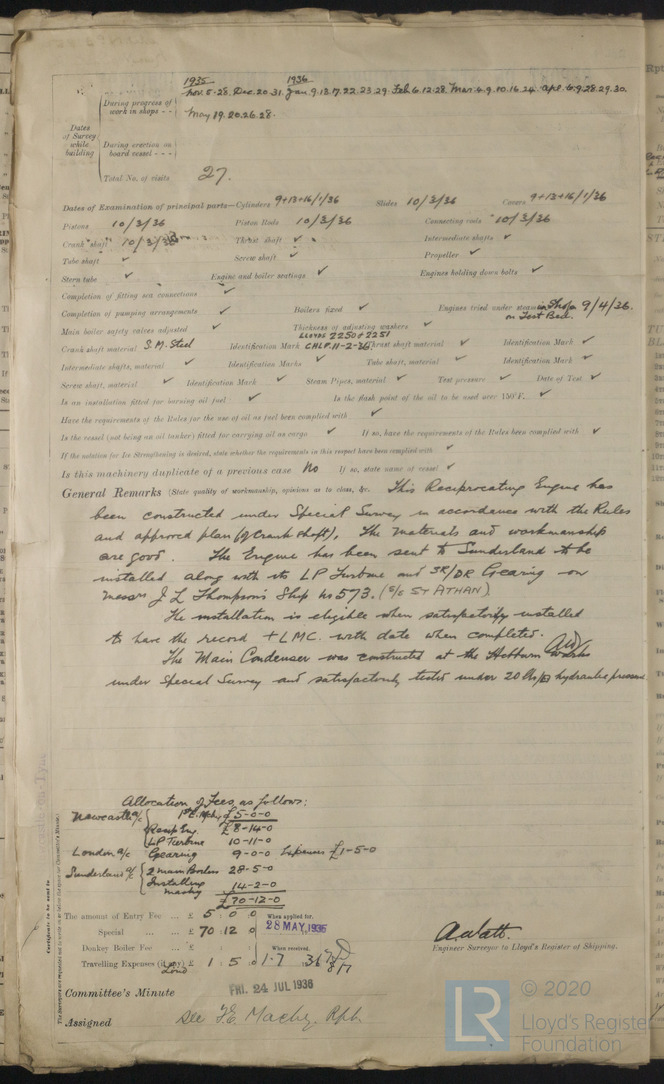 1935 1936
During progress of work in shops - - Nov. 5.28. Dec. 20.31. Jan 9.13.17.22.23.29. Feb 6.12.28. Mar. 4.9.10.16.24. Apl. 6.9.28.29.30.
May 19.20.26.28.
Dates of Survey while building
During erection on board vessel - - -
Total No. of visits 27.
Dates of Examination of principal parts—Cylinders 9+13+16/1/36 Slides 10/3/36 Covers 9+13+16/1/36
Pistons 10/3/36 Piston Rods 10/3/36 Connecting rods 10/3/36
Crank shaft 10/3/36 Thrust shaft ✓ Intermediate shafts ✓
Tube shaft ✓ Screw shaft ✓ Propeller ✓
Stern tube ✓ Engine and boiler seatings ✓ Engines holding down bolts ✓
Completion of fitting sea connections ✓
Completion of pumping arrangements ✓ Boilers fixed ✓ Engines tried under steam in Shop on Test Bed. 9/4/36.
Main boiler safety valves adjusted ✓ Thickness of adjusting washers ✓
Crank shaft material S.M. Steel Identification Mark LLOYDS 2250+2251 CHLP. 11-2-36 Thrust shaft material ✓ Identification Mark ✓
Intermediate shafts, material ✓ Identification Marks ✓ Tube shaft, material ✓ Identification Mark ✓
Screw shaft, material ✓ Identification Mark ✓ Steam Pipes, material ✓ Test pressure ✓ Date of Test ✓
Is an installation fitted for burning oil fuel ✓ Is the flash point of the oil to be used over 150°F. ✓
Have the requirements of the Rules for the use of oil as fuel been complied with ✓
Is the vessel (not being an oil tanker) fitted for carrying oil as cargo ✓ If so, have the requirements of the Rules been complied with ✓
If the notation for Ice Strengthening is desired, state whether the requirements in this respect have been complied with ✓
Is this machinery duplicate of a previous case No If so, state name of vessel ✓
General Remarks (State quality of workmanship, opinions as to class, &c. This Reciprocating Engine has
been constructed under Special Survey in accordance with the Rules
and approved plan (of Crank Shaft). The materials and workmanship
are good. The Engine has been sent to Sunderland to be
installed along with its LP Turbine and SR/DR Gearing on
Messrs J L Thompson's Ship No 573. (S/S ST ATHAN)
The installation is eligible when satisfactorily installed
to have the record + LMC. with date when completed.
The Main Condenser was constructed at the Hebburn Works
under Special Survey and satisfactorily tested under 20 lbs/□ hydraulic pressure
Allocation of Fees as follows:
Newcastle a/c 1st E. Mchy £5-0-0
Recip Eng. £8-14-0
LP Turbine 10-11-0
London a/c Gearing 9-0-0 Expenses £1-5-0
Sunderland a/c 2 main Boilers 28-5-0
Installing machy 14-2-0
£70-12-0
The amount of Entry Fee ... £ 5 : 0 : 0 When applied for,
Special ... ... £ 70 : 12 : 0 28 MAY 1936
Donkey Boiler Fee ... £ When received,
Travelling Expenses (if any) £ 1 : 5 : 0 1.7 36
Lond
A. Watt.
Engineer Surveyor to Lloyd's Register of Shipping.
Committee's Minute FRI. 24 JUL 1936
Assigned See F.E. Machy. Rpt.
Certificate to be sent to
LR © 2020
Lloyd's Register
Foundation